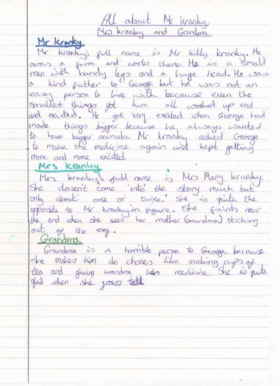 All about Mr Kranky
Mrs kranky and Grandma.
Mr kranky
Mr kranky's full name is Mr killy kranky. He
owns a farm and works there. He is a small
man with bandy legs and a huge head. He was
a kind father to George but he was not an
easy person to live with because even the
smallest things got him all worked up and
and excited. He got very excited when George had
made things bigger because he always wanted
to have bigger animals. Mr kranky asked George
to make the medicine again and kept getting
more and more excited.
Mrs kranky
Mrs kranky's full name is Mrs Mary kranky.
She doesn't come into the story much but
only about once or twice. She is quite the
opposite to Mr kranky in figure. She faints near
the end when she sees her mother (Grandma) sticking
out of the roof.
Grandma.
Grandma is a horrible person to George because
she makes him do chores like making cups of
tea and giving grandma her medicine. She is quite
glad when she grows tall